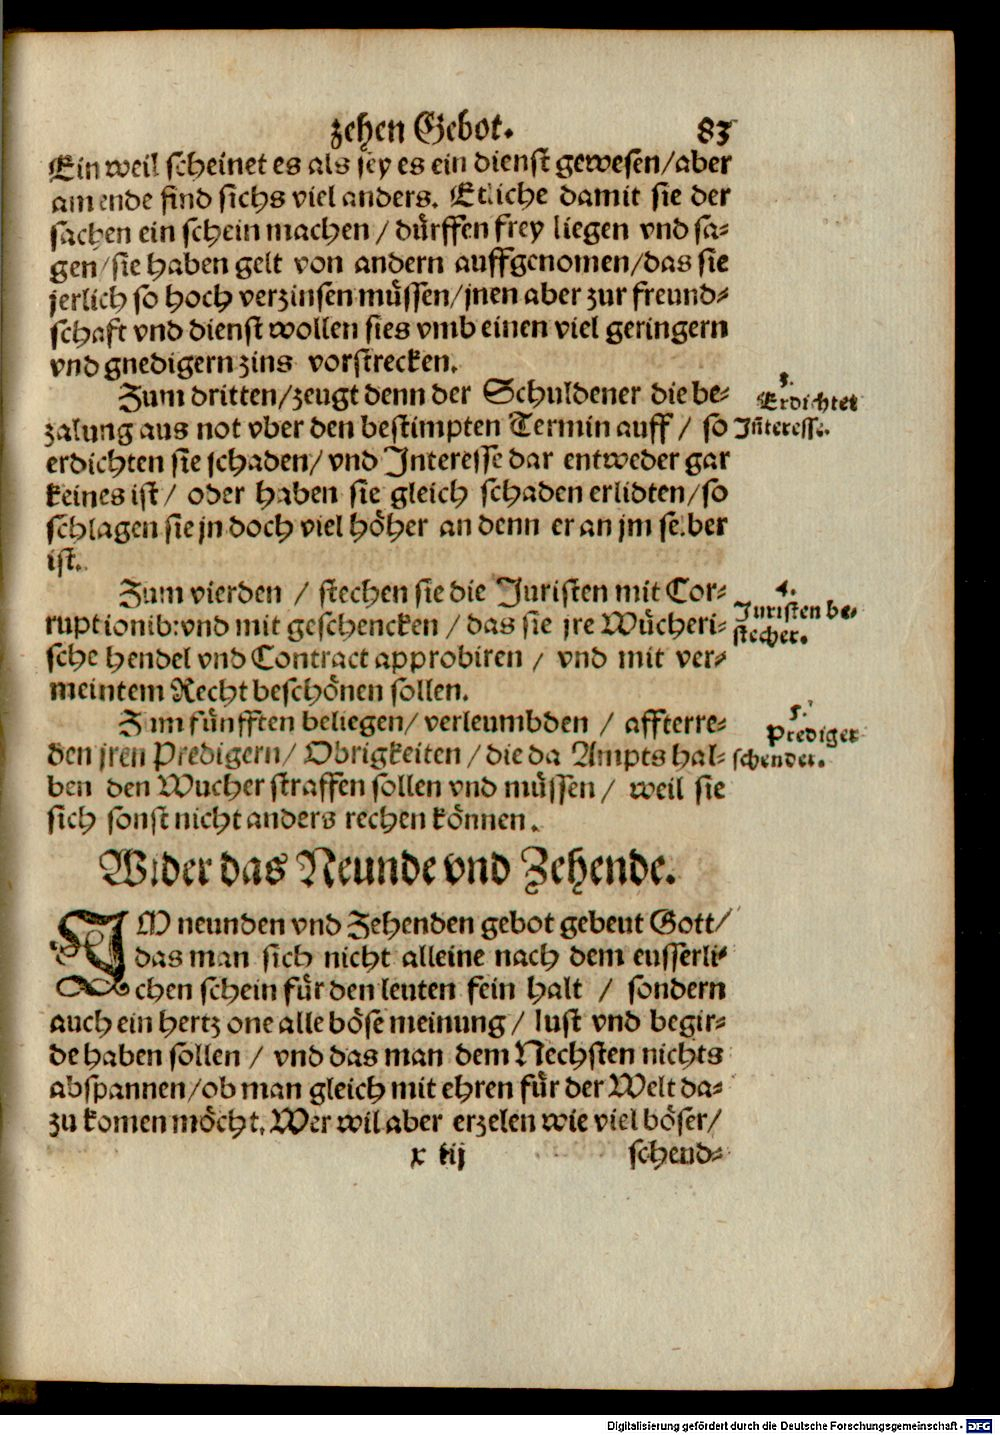 zehen Gebot. 83
Ein weil scheinet es als sey es ein dienst gewesen/aber
am ende find sichs viel anders. Etliche damit sie der
sachen ein schein machen / dürffen frey liegen vnd sa-
gen/sie haben gelt von andern auffgenomen/das sie
jerlich so hoch verzinsen müssen/jnen aber zur freund-
schaft vnd dienst wollen sies vmb einen viel geringern
vnd gnedigern zins vorstrecken.
Zum dritten/zeugt denn der Schuldener die be-
zalung aus not vber den bestimpten Termin auff / so
erdichten sie schaden/ vnd Interesse dar entweder gar
keines ist/ oder haben sie gleich schaden erlidten/so
schlagen sie jn doch viel höher an denn er an jm selber
ist.
3.
Erdichtet
Interess.
Zum vierden / stechen sie die Juristen mit Cor-
ruptionib:vnd mit geschencken / das sie jre Wücheri-
sche hendel vnd Contract approbiren / vnd mit ver-
meintem Recht beschönen sollen.
4.
Juristen be-
stecher.
Zum fünfften beliegen/ verleumbden / affterre-
den jren Predigern/ Obrigkeiten / die da Ampts hal-
ben den Wucher straffen sollen vnd müssen/ weil sie
sich sonst nicht anders rechen können.
5.
Prediger
schender.
Wider das Neunde vnd Zehende.
IM neunden vnd Zehenden gebot gebeut Gott/
das man sich nicht alleine nach dem eusserli-
chen schein für den leuten fein halt / sondern
auch ein hertz one alle böse meinung / lust vnd begir-
de haben sollen / vnd das man dem Nechsten nichts
abspannen/ob man gleich mit ehren für der Welt da-
zu komen möcht. Wer wil aber erzelen wie viel böser/
x iij schend-
Digitalisierung gefördert durch die Deutsche Forschungsgemeinschaft - DFG